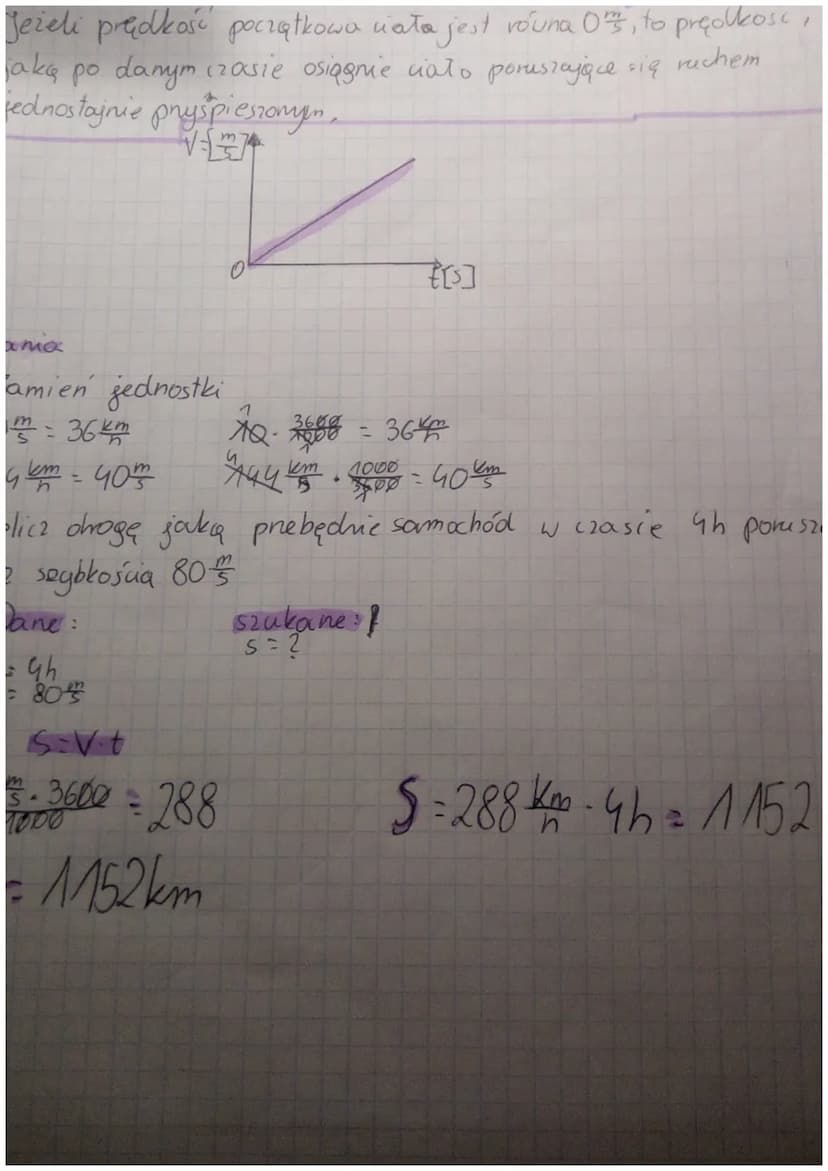 Jeżeli prędkość początkowa ciała jest równa 0 m/s, to prędkość,
jaką po danym czasie osiągnie ciało poruszające się ruchem
jednostajnie przyśpieszonym.
V=[m/s]
0
t[s]
ania
amień jednostki
m/s = 36 km/h 10 · 3600/1000 = 36 km/h
4 km/h = 40 m/s 144 km/h · 1000/3600 = 40 km/s
licz drogę jaką przebędzie samochód w czasie 4h porusz
z szybkością 80 m/s
Dane: szukane:
s = ?
= 4h
= 80 m/s
S=V·t
m/s · 3600/1000 = 288 S = 288 km/h · 4h = 1152
= 1152km